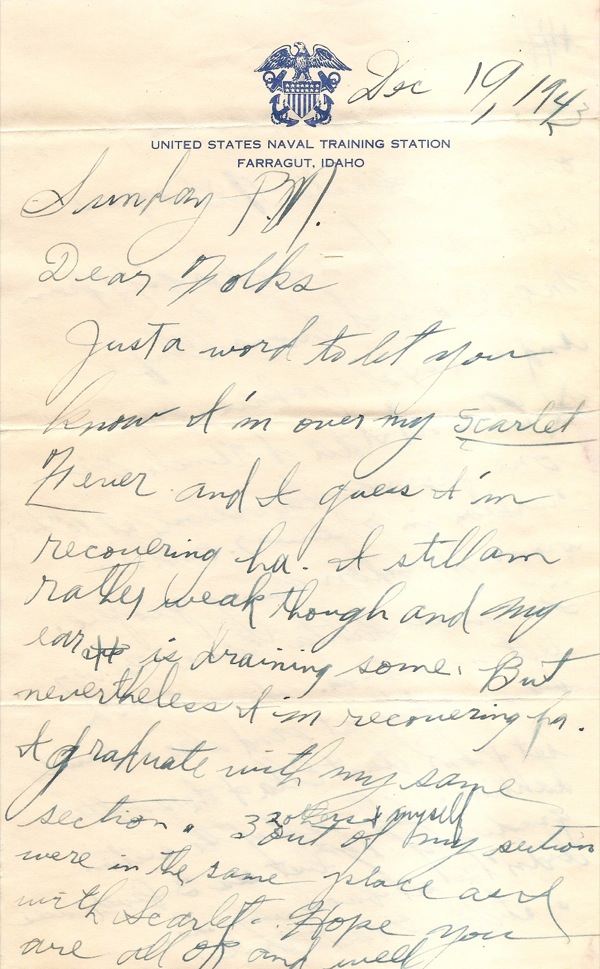 Dec 19, 1943
UNITED STATES NAVAL TRAINING STATION
FARRAGUT, IDAHO
Sunday P.M.
Dear Folks
Just a word to let you
know I'm over my Scarlet
Fever and I guess I'm
recovering ha. I still am
rather weak though and my
ear is draining some. But
nevertheless I'm recovering ha.
I graduate with my same
section. 3 others & myself
out of my section
were in the same place and
with Scarlet. Hope you
are all OK and well